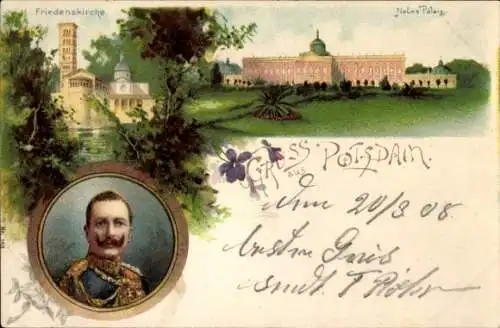 Friedenskirche
Neues Palais.
GRUSS
aus
POTSDAM.
den 20/3 08
besten Gruß
sendt F